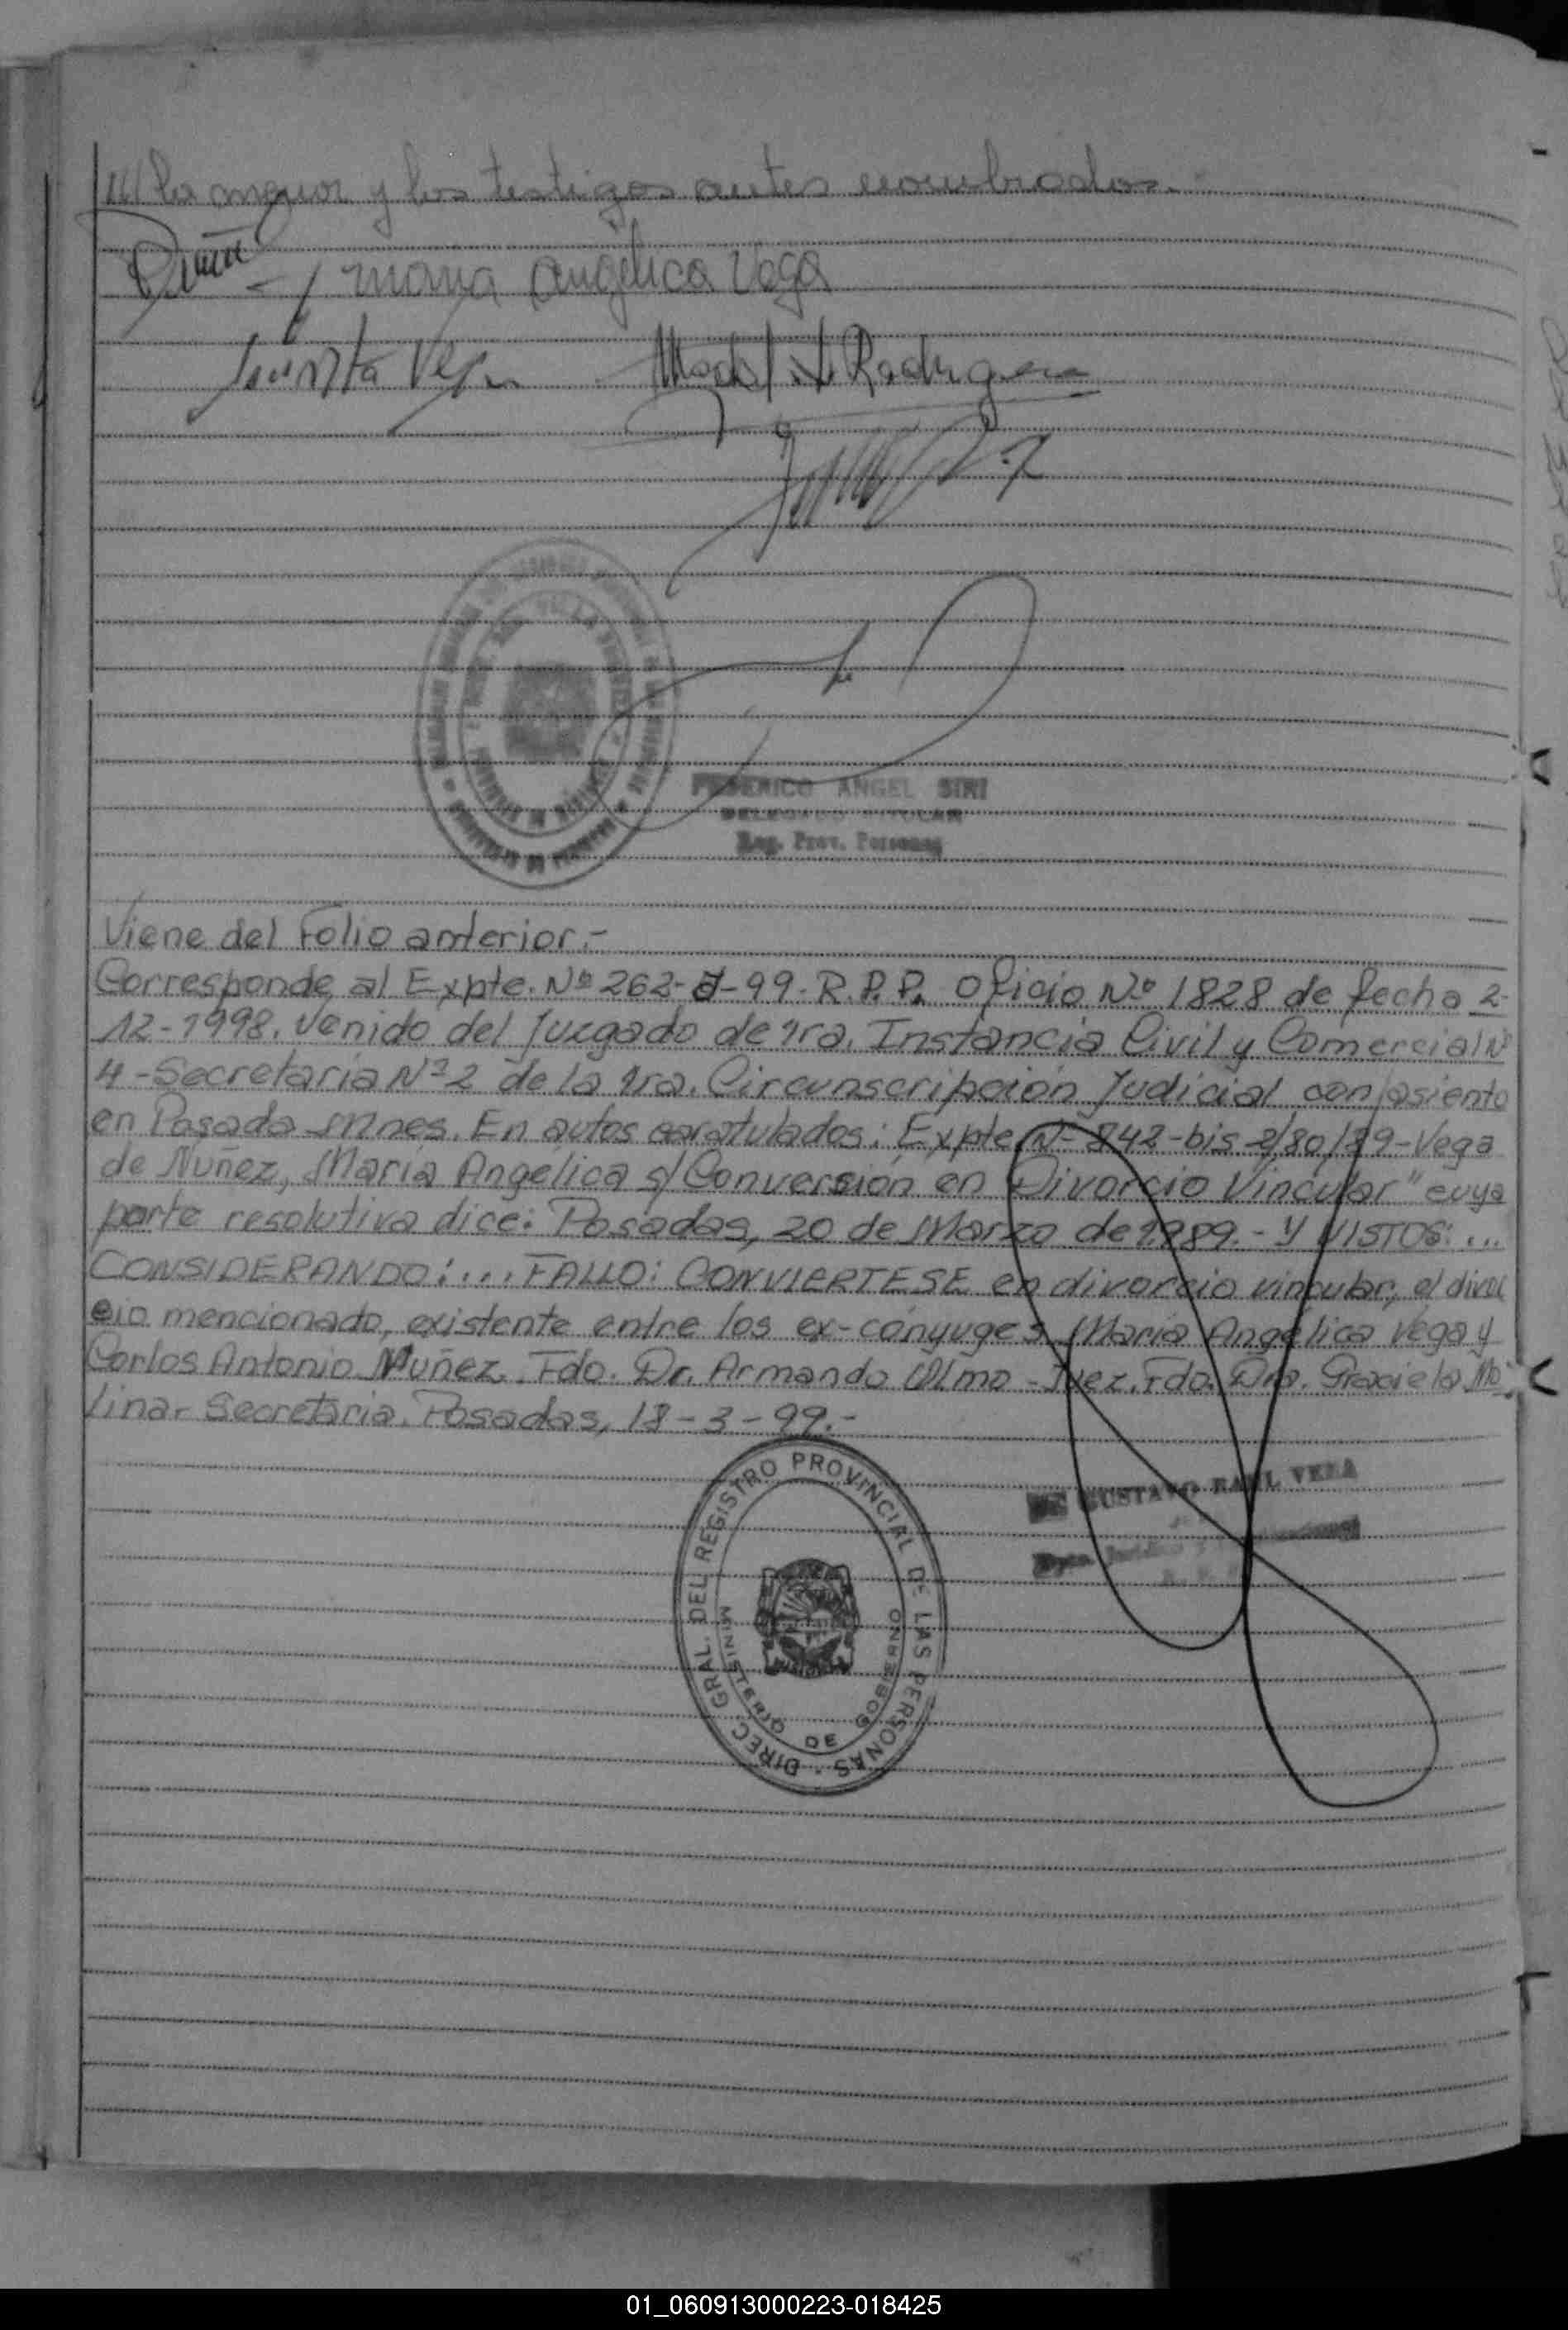 /// la menor y los testigos antes nombrados.-
Maria Angelica Vega
Vega
Rodriguez
FEDERICO ANGEL SIRI
DELEGADO TITULAR
Reg. Prov. Personas
Viene del Folio anterior.-
Corresponde al Expte. Nº 262-J-99-R.P.P. Oficio Nº 1828 de fecha 2-
12-1998. Venido del Juzgado de 1ra. Instancia Civil y Comercial Nº
4-Secretaría Nº 2 de la 1ra. Circunscripción Judicial con asiento
en Posadas Mnes. En autos caratulados: Expte Nº 842-bis 2/80/89-Vega
de Nuñez, María Angélica s/ Conversión en Divorcio Vincular" cuya
parte resolutiva dice: Posadas, 20 de Marzo de 1.989.- Y VISTOS: ...
CONSIDERANDO: ... FALLO: CONVIERTESE en divorcio vincular, el divor
cio mencionado, existente entre los ex-cónyuges María Angélica Vega y
Carlos Antonio Nuñez. Fdo. Dr. Armando Olmo - Juez. Fdo. Dra. Graciela Mo
lina- Secretaria. Posadas, 18-3-99.-
GUSTAVO RAUL VERA
DIREC. GRAL. DEL REGISTRO PROVINCIAL DE LAS PERSONAS
MINISTERIO DE GOBIERNO
01_060913000223-018425